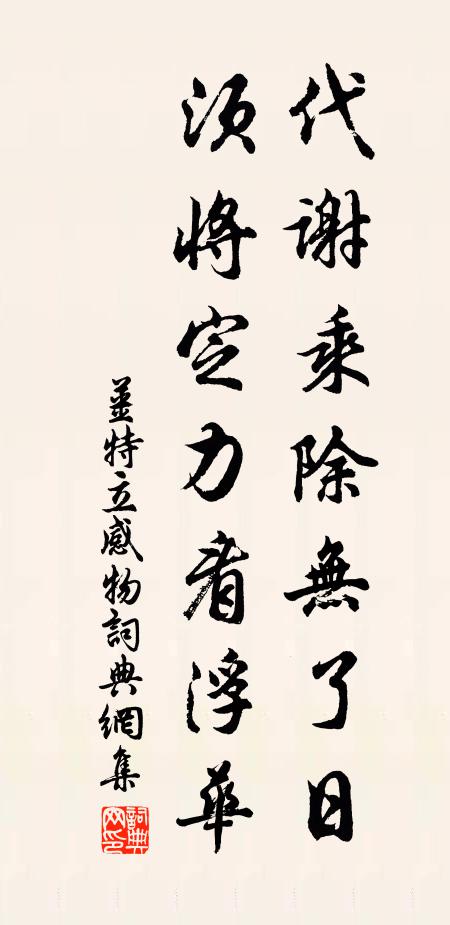 代謝乘除無了日
須將定力看浮華
薑特立感物詞典網集
詞典网印